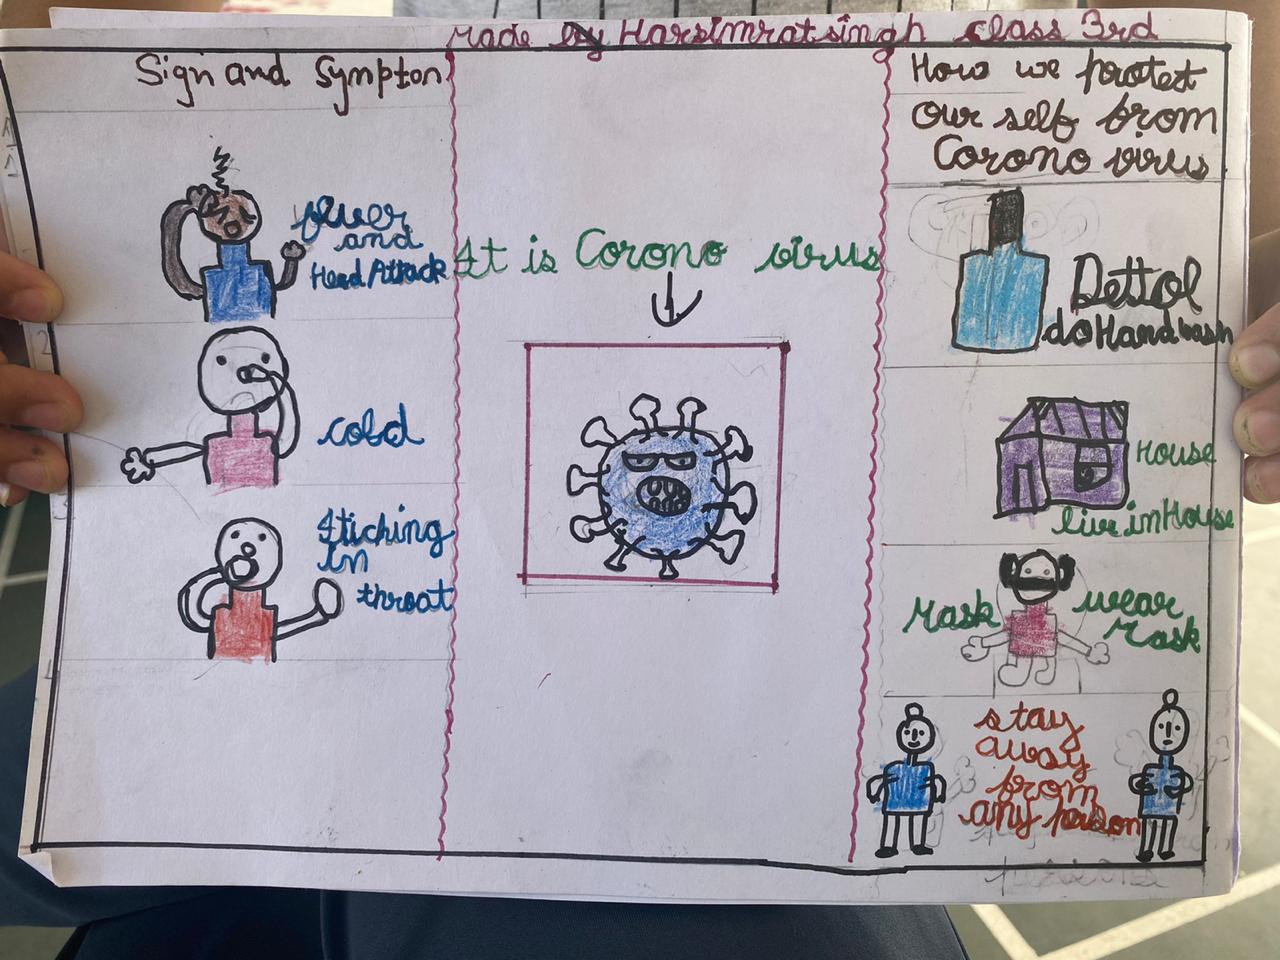 Made by Harsimratsingh class 3rd
Sign and Sympton
fever
and
Head Attack
cold
Itiching
in
throat
It is Corono virus
How we protest
our self from
Corono virus
Dettol
do Hand wash
House
live in House
Mask
wear
Mask
stay
away
from
any person